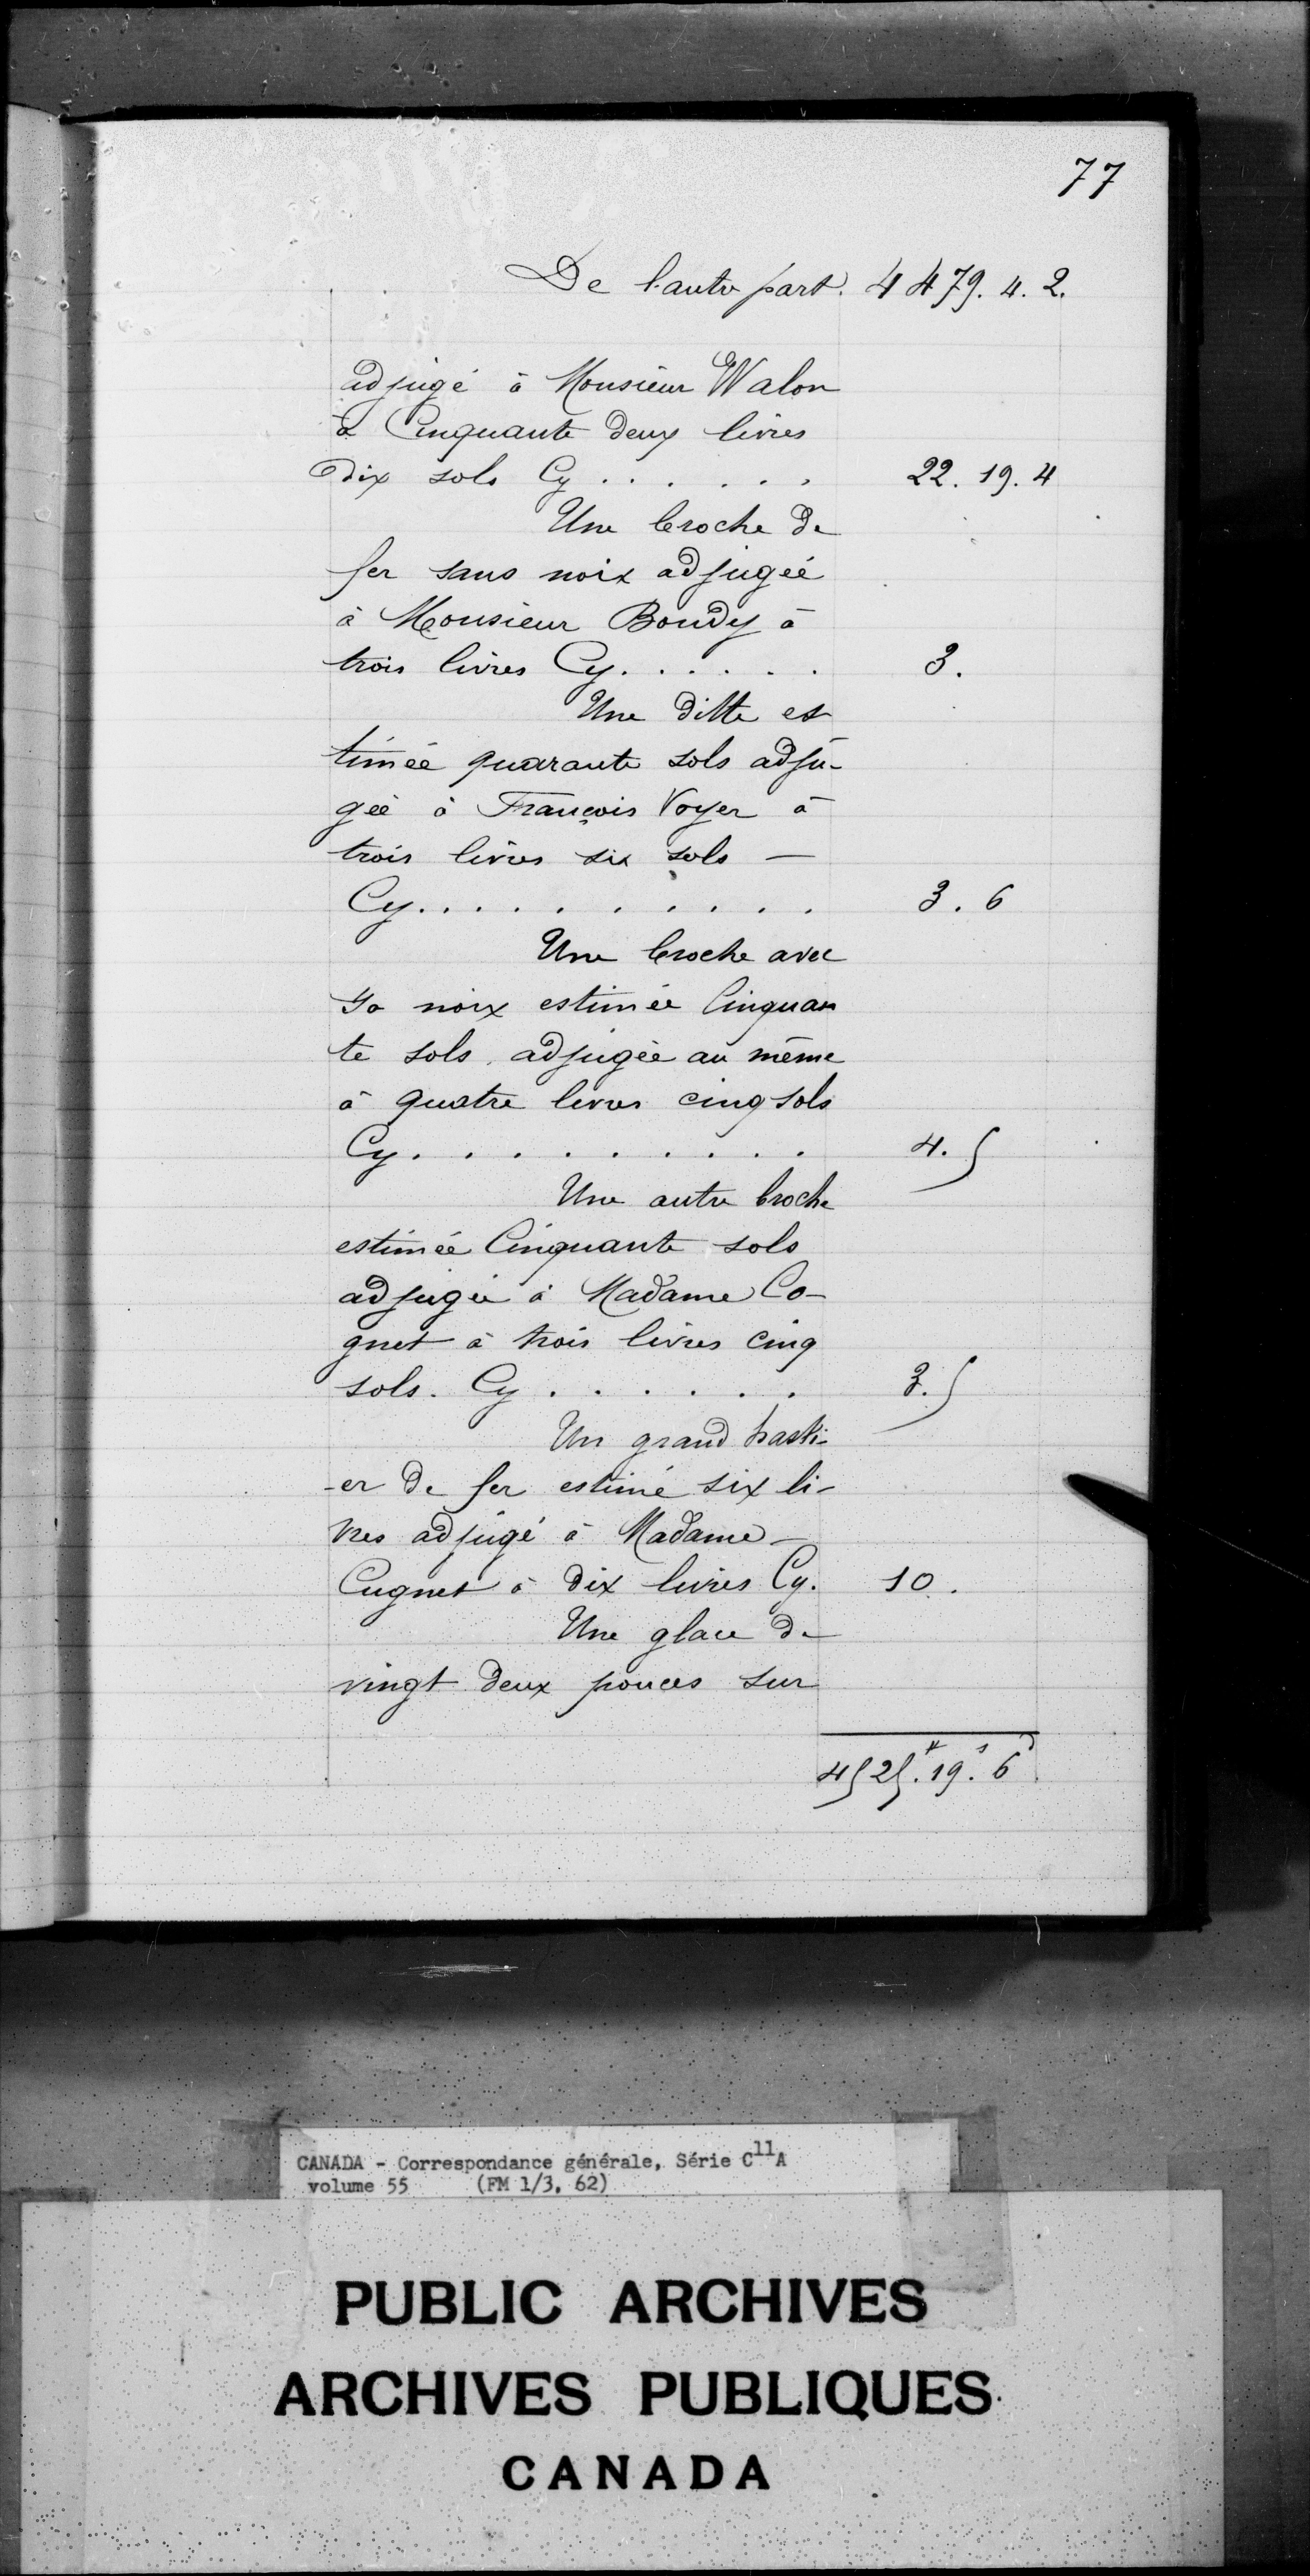 77
De l'autre part. 4479. 4. 2.
adjugé à Monsieur Walon
à Cinquante deux livres
dix sols Cy . . . . . . 22. 19. 4
Une broche de
fer sans noix adjugée
à Monsieur Boudy à
trois livres Cy. . . . . . 3.
Une ditte es
timée quarante sols adju-
gée à François Voyer à
trois livres six sols —
Cy. . . . . . . . . . 3. 6
Une broche avec
sa noix estimée Cinquan
te sols adjugée au même
à quatre livres cinq sols
Cy. . . . . . . . . . 4. 5
Une autre broche
estimée Cinquante sols
adjugée à Madame Co-
gnet à trois livres cinq
sols. Cy . . . . . . 3. 5
Un grand hasti-
-er de fer estimé six li-
vres adjugé à Madame —
Cugnet à dix livres Cy. 10.
Une glace de
vingt deux pouces sur
4525.# 19.s 6d
CANADA - Correspondance générale, Série C11A
volume 55 (FM 1/3, 62)
PUBLIC ARCHIVES
ARCHIVES PUBLIQUES
CANADA